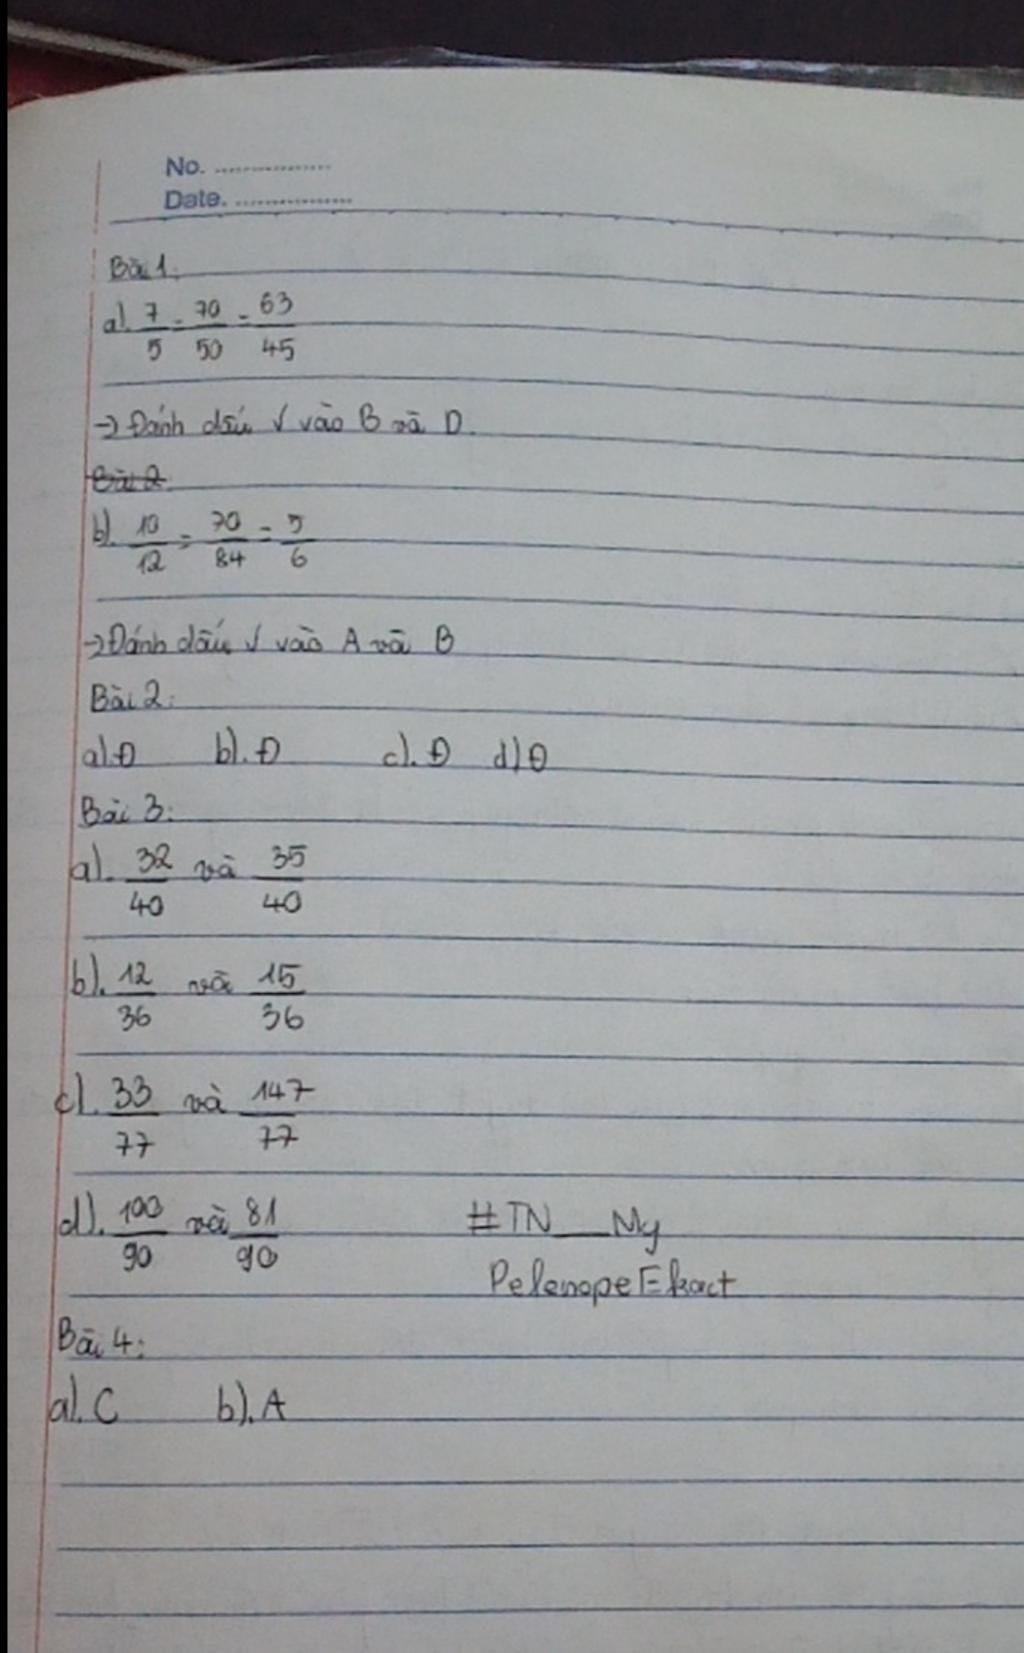 No. ................
Date. ................
Bài 1:
a). 7/5 = 70/50 = 63/45
→ Đánh dấu √ vào B và D.
Bài 2
b). 10/12 = 70/84 = 5/6
→ Đánh dấu √ vào A và B
Bài 2:
a). Đ b). Đ c). Đ d) Đ
Bài 3:
a). 32/40 và 35/40
b). 12/36 và 15/36
c). 33/77 và 147/77
d). 100/90 và 81/90
#TN__My
PelenopeEkact
Bài 4:
a). C b). A